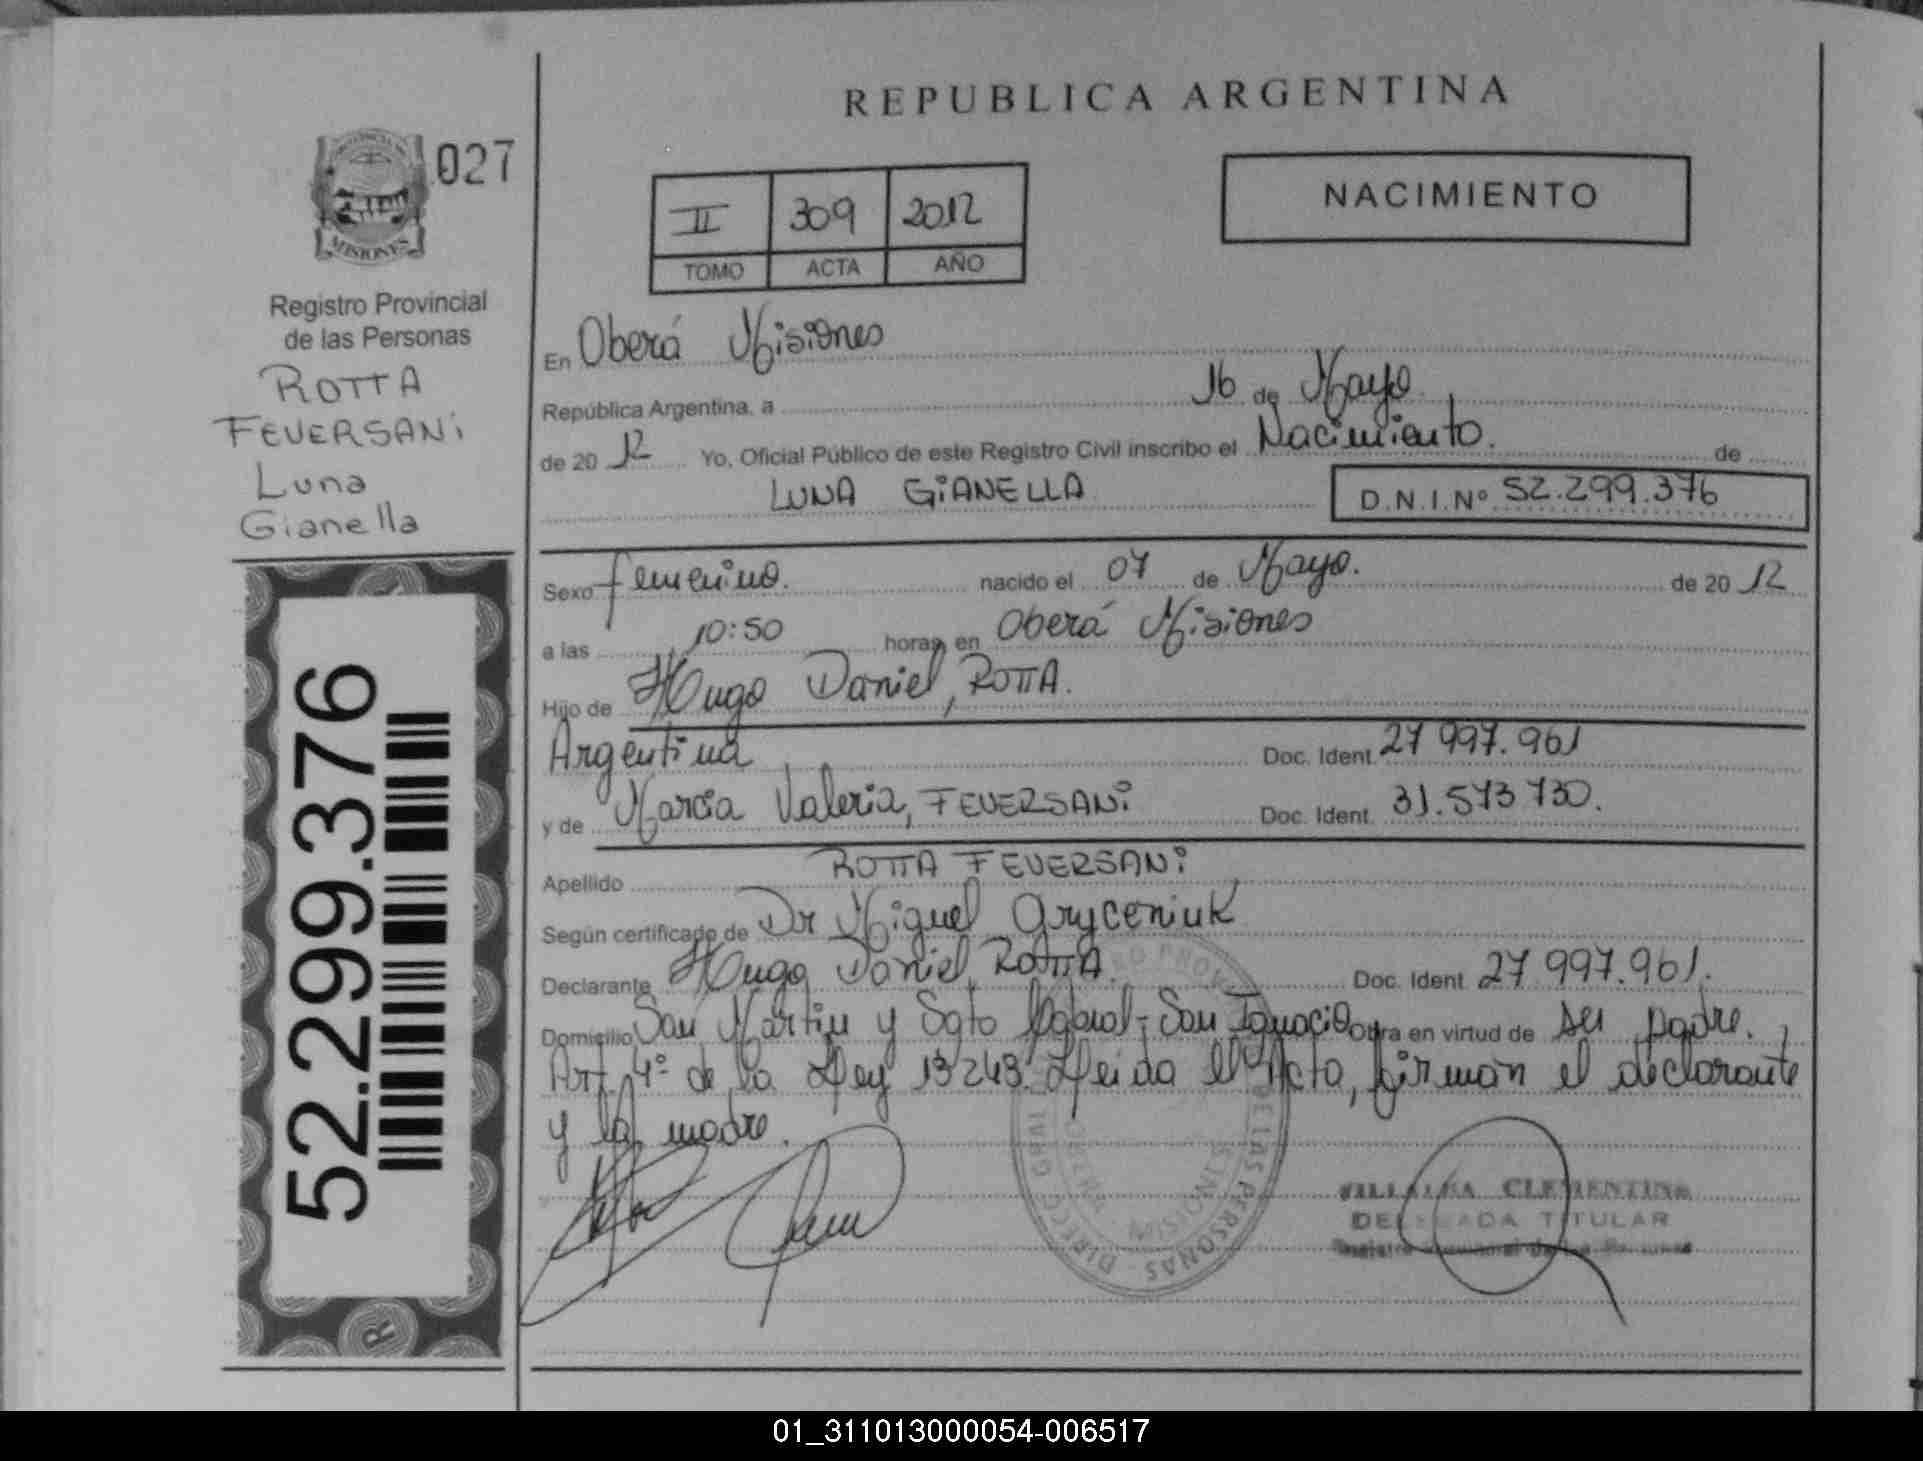 REPUBLICA ARGENTINA
PROVINCIA DE
MISIONES
027
Registro Provincial
de las Personas
ROTTA
FEVERSANi
Luna
Gianella
52.299.376
R
II 309 2012
TOMO ACTA AÑO
NACIMIENTO
En Oberá Misiones
República Argentina, a 16 de Mayo
de 20 12 Yo, Oficial Público de este Registro Civil inscribo el Nacimiento. de
LUNA GiANELLA D.N.I.Nº 52.299.376
Sexo femenino. nacido el 07 de Mayo. de 20 12
a las 10:50 horas en Oberá Misiones
Hijo de Hugo Daniel, ROTTA.
Argentina Doc. Ident. 27 997.961
y de Marcia Valeria, FEVERSANi Doc. Ident. 31.573 730.
Apellido ROTTA FEVERSANi
Según certificado de Dr Miguel Gryceniuk
Declarante Hugo Daniel, ROTTA. Doc. Ident. 27 997.961.
Domicilio San Martin y Sgto Cabral - San Ignacio Obra en virtud de ser padre.
Art. 4º de la Ley 13248. Leida el Acta, firman el declarante
y la madre.
VILLALBA CLEMENTINA
DELEGADA TITULAR
Registro Provincial de las Personas
DE LAS PERSONAS
MISIONES
01_311013000054-006517